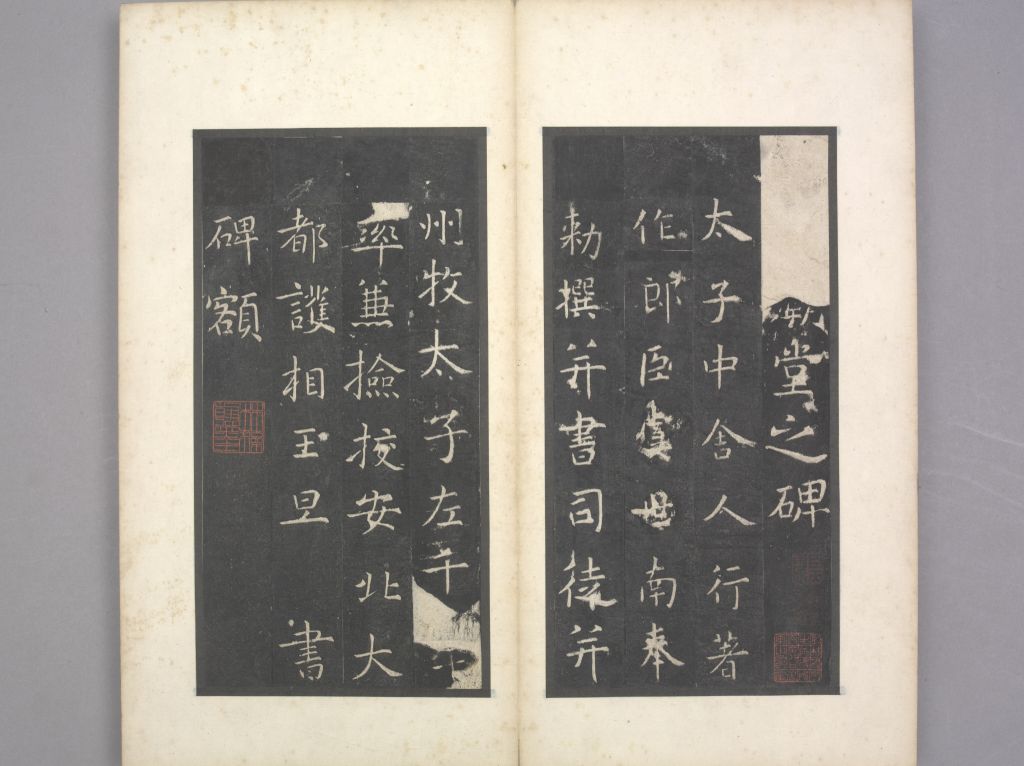 堂之碑
太子中舍人行著
作郎臣虞世南奉
勅撰并書司徒并
州牧太子左千
率兼撿挍安北大
都護相王旦書
碑額